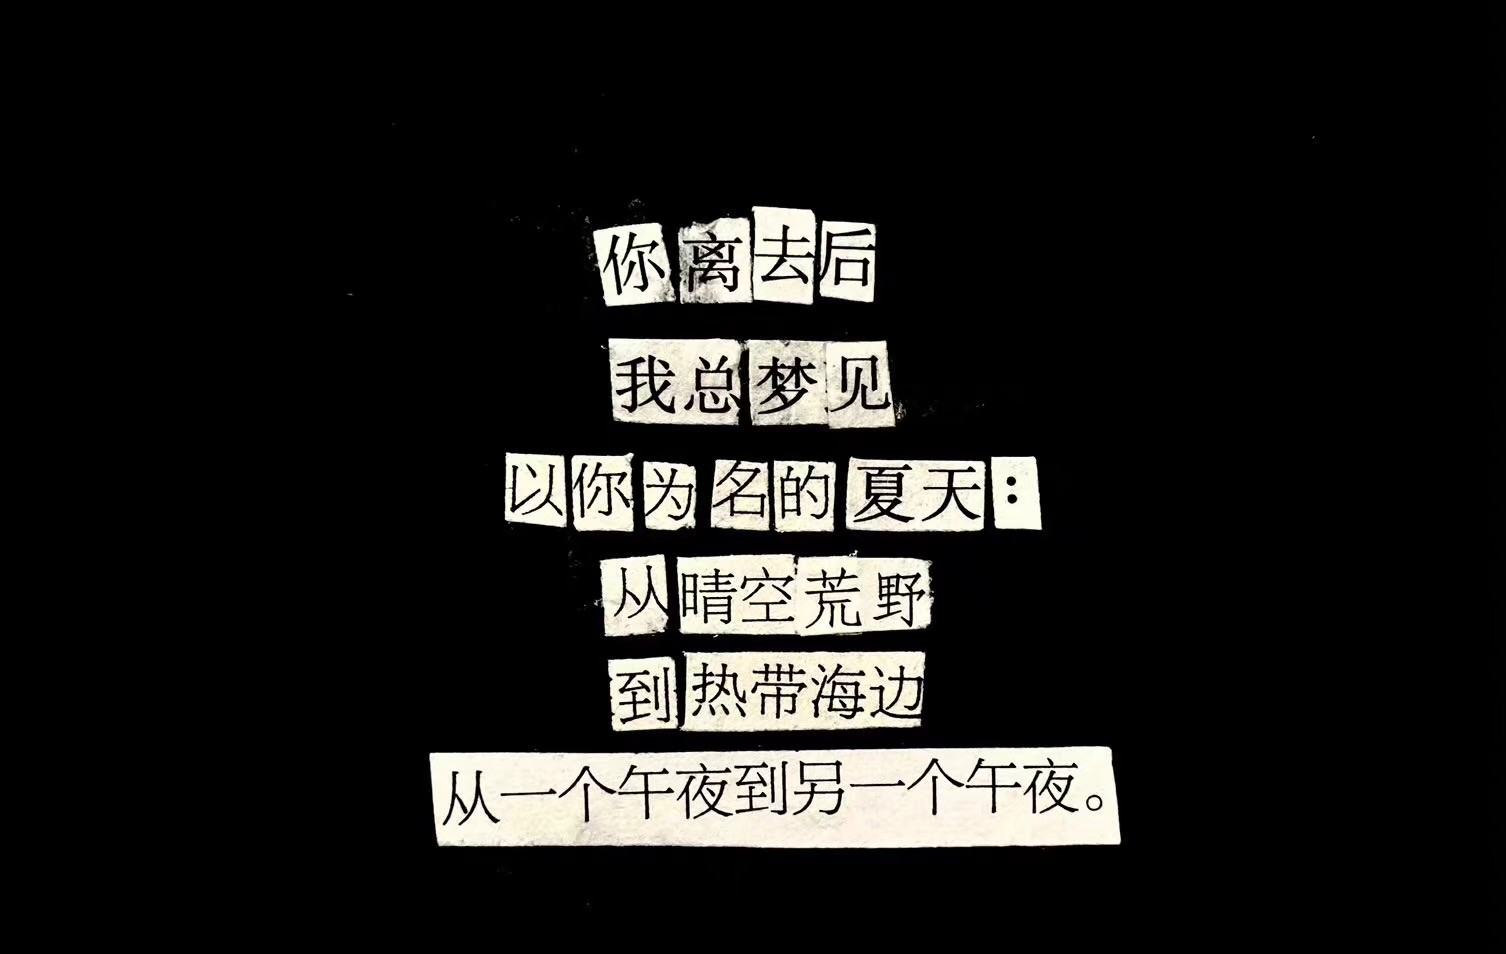 你离去后
我总梦见
以你为名的夏天：
从晴空荒野
到热带海边
从一个午夜到另一个午夜。